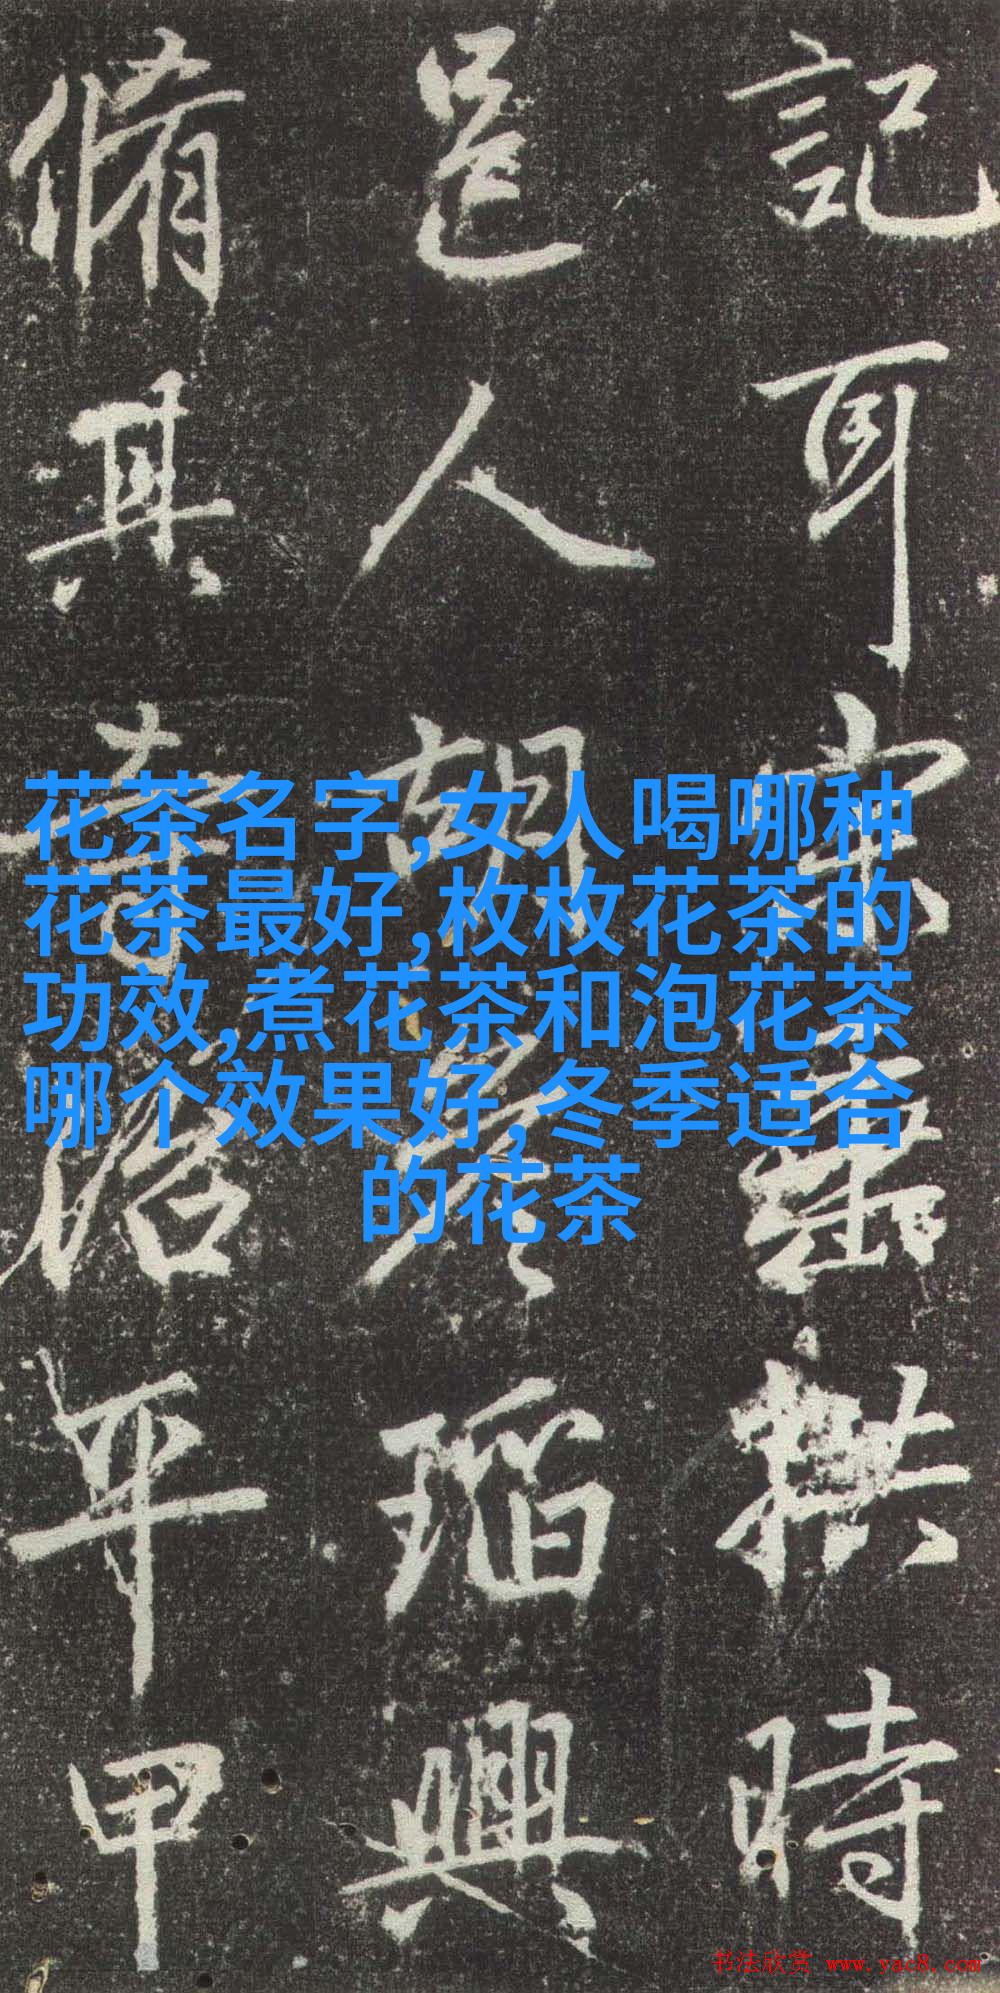 記耳宋
拱時
邑人胡
瑫興
脩其
平甲
花茶名字,女人喝哪种
花茶最好,枚枚花茶的
功效,煮花茶和泡花茶
哪个效果好,冬季适合
的花茶
书法欣赏 www.yac8.com